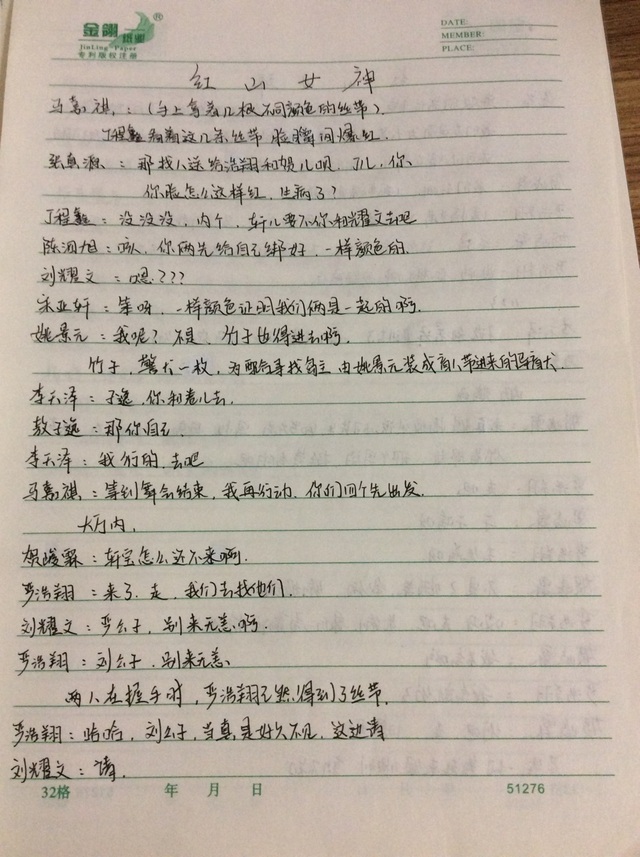 金翎纸业®
JinLing Paper
专利版权注册
DATE:
MEMBER:
PLACE:
红山女神
马嘉祺：(手上拿着几根不同颜色的丝带)
丁程鑫看着这几条丝带 脸瞬间爆红.
张真源：那找人送给浩翔和贺儿呗. 丁儿,你、
你脸怎么这样红,生病了?
丁程鑫：没没没,内个,轩儿要不你和耀文去吧
陈泗旭：咳,你两先给自己绑好,一样颜色的.
刘耀文：嗯???
宋亚轩：笨呀,一样颜色证明我们俩是一起的啊.
姚景元：我呢?不是,竹子也得进去啊.
竹子,警犬一枚,为配合寻找角主,由姚景元装成盲人带进来的导盲犬
李天泽：子逸,你和老儿去.
敖子逸：那你自己.
李天泽：我行的,去吧
马嘉祺：等到舞会结束,我再行动,你们四个先出发.
大厅内,
贺峻霖：轩宝怎么还不来啊.
严浩翔：来了,走,我们去找他们.
刘耀文：严公子,别来无恙啊.
严浩翔：刘公子,别来无恙.
两人在握手时,严浩翔已然得到了丝带.
严浩翔：哈哈,刘公子,当真是好久不见,这边请
刘耀文：请.
32格 年 月 日 51276